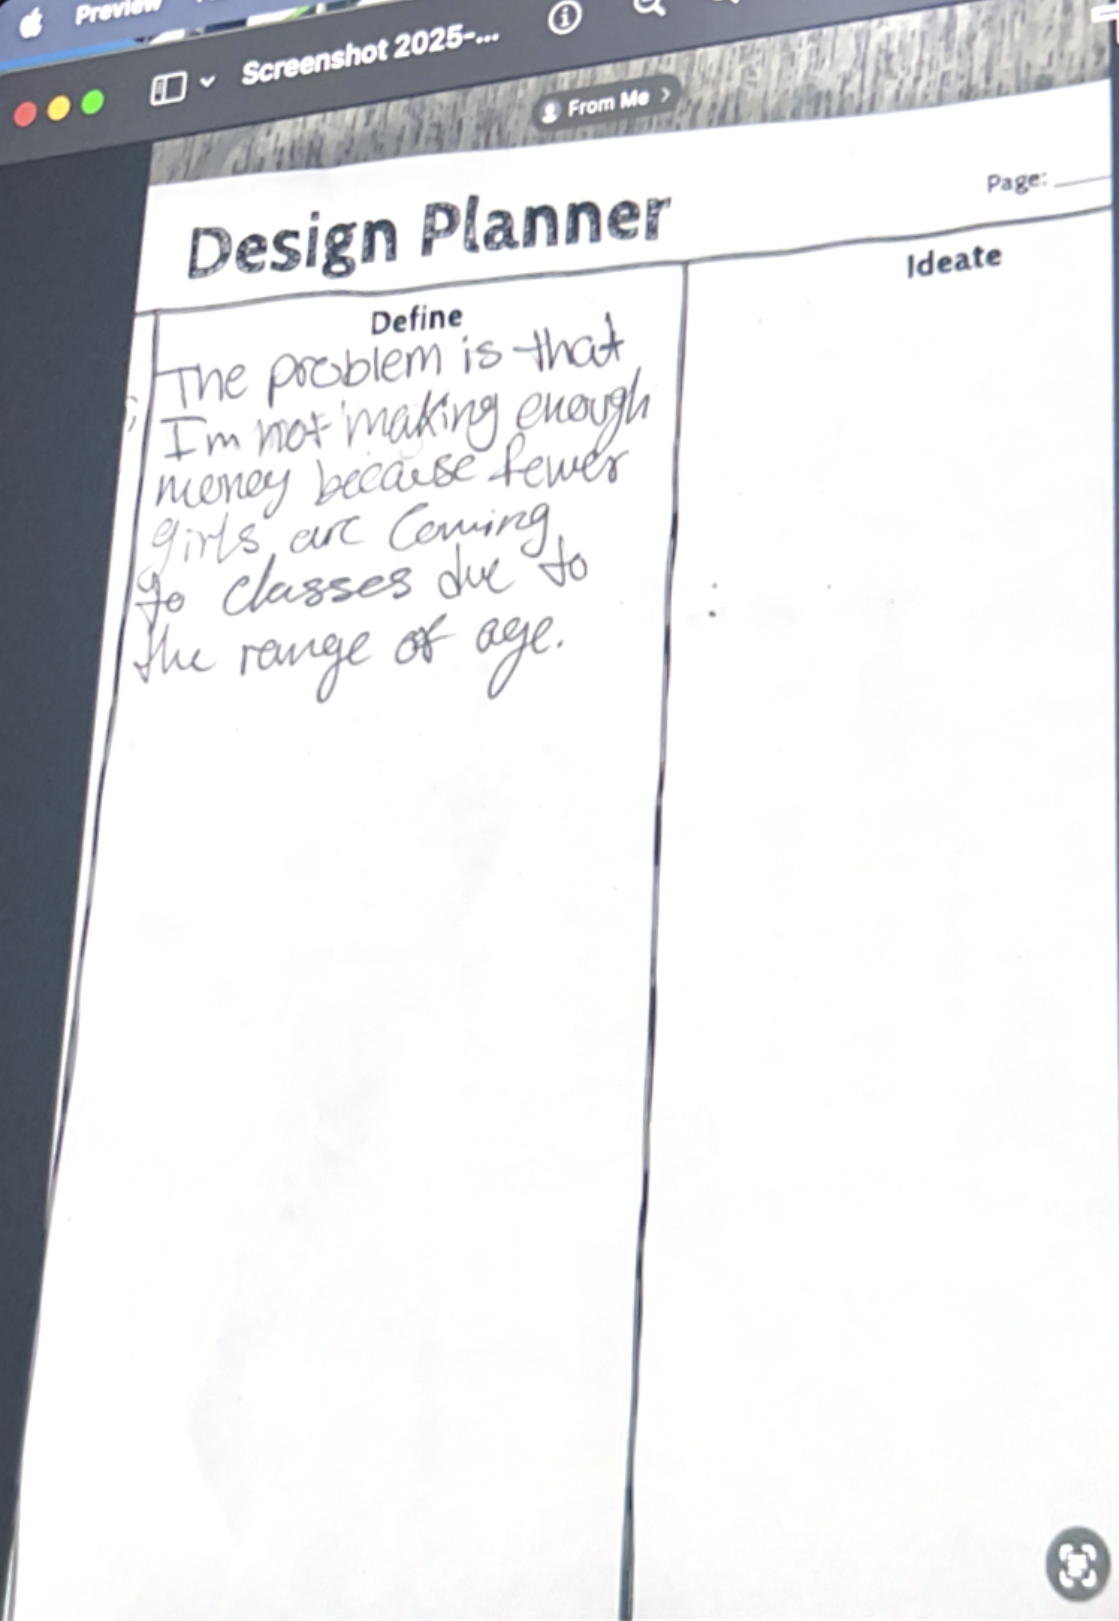 Preview
Screenshot 2025-...
From Me >
Page:
Design Planner
Define
Ideate
The problem is that
I'm not making enough
money because fewer
girls are coming
to classes due to
the range of age.